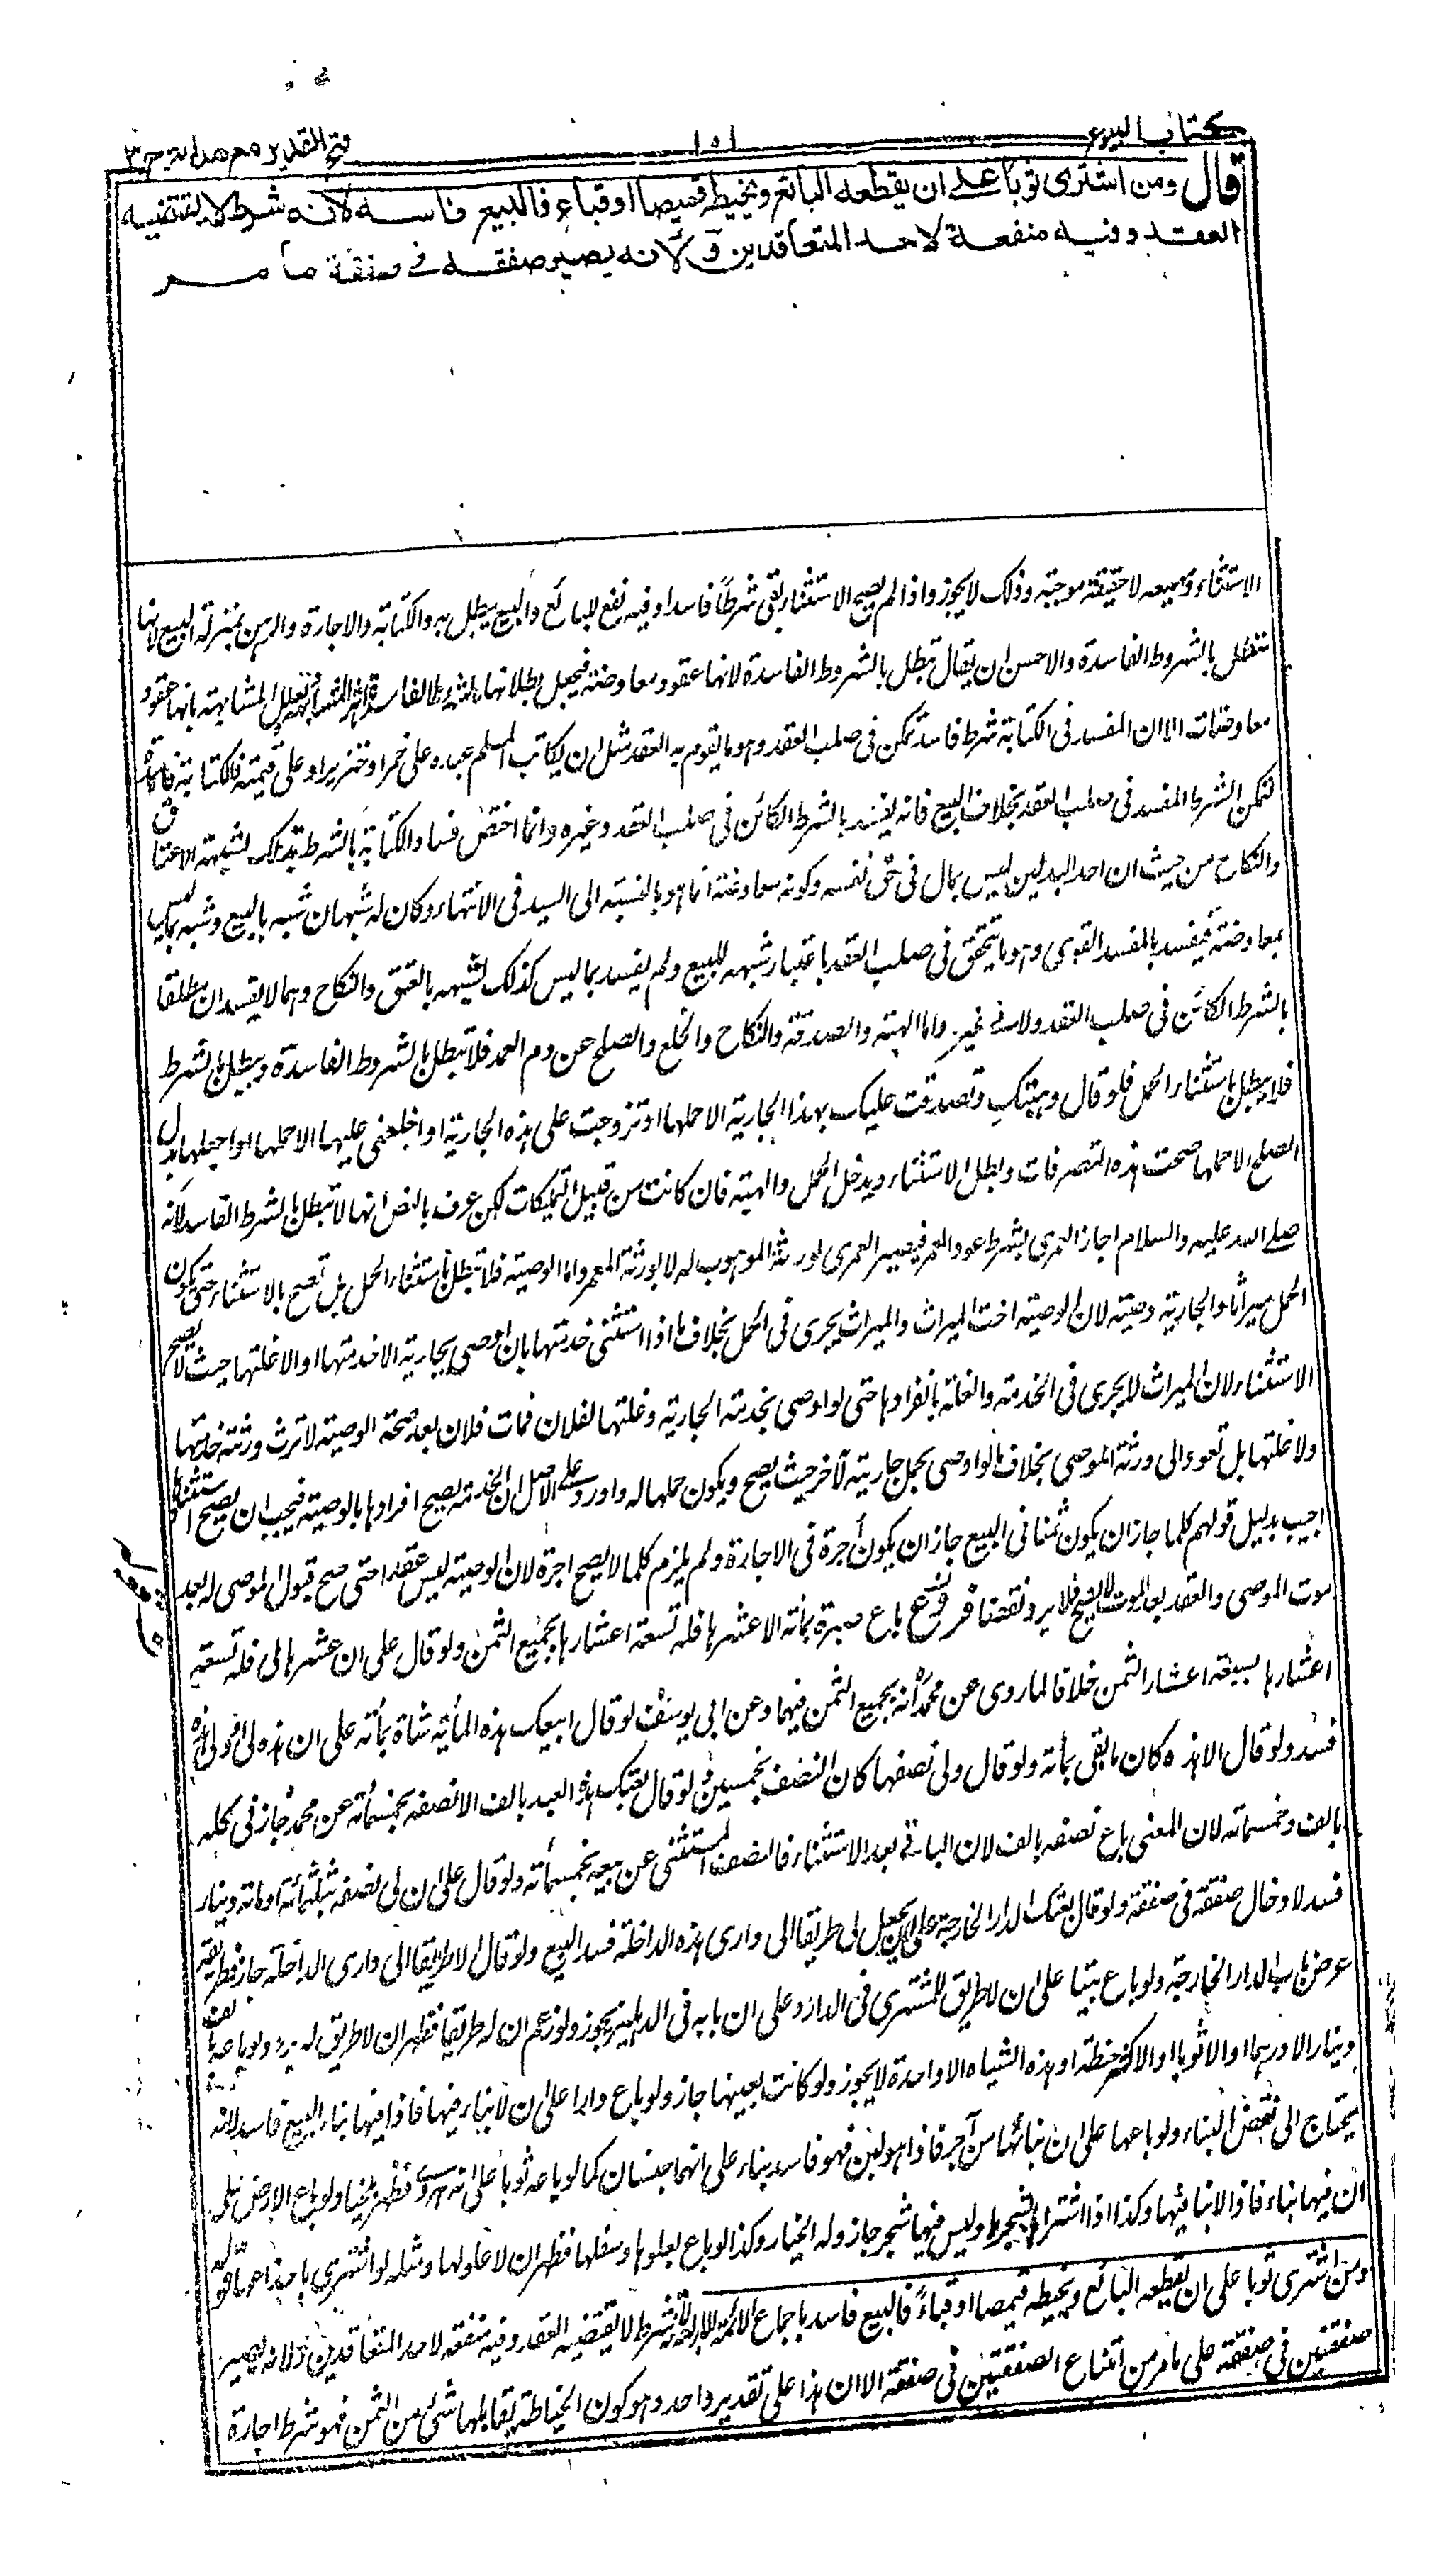 كتاب البيوع
١٥١
فتح القدير مع هداية ج ٣
قال ومن اشترى ثوبا على ان يقطعه البائع ويخيطه قميصا او قباء فالبيع فاسد لانه شرط لا يقتضيه
العقد وفيه منفعة لاحد المتعاقدين ولانه يصير صفقة فى صفقة ما مر
الاستثناء لا حقيقته موجبة وذلك لا يجوز واذا لم يصح الاستثناء بقى شرطا فاسدا وفيه نفع للبائع والبيع يبطل به والكتابة والاجارة والرهن بمنزلة البيع لانها
تبطل بالشروط الفاسدة والاحسن ان يقال تبطل بالشروط الفاسدة لانها عقود معاوضة فيجعل بطلانها بالشروط الفاسدة المشابهة بانها عقود
معاوضات الا ان المفسد فى الكتابة شرط فاسد تمكن فى صلب العقد وهو ما يقوم به العقد مثل ان يكاتب المسلم عبده على خمر او خنزير او على قيمته فالكتابة فاسدة
لتمكن الشرط المفسد فى صلب العقد بخلاف البيع فانه يفسد بالشرط الكائن فى صلب العقد وغيره وانما اختص فساد الكتابة بالشرط بذلك لشبهة الاعتاق
والنكاح من حيث ان احد البدلين ليس بمال فى حق نفسه وكونه معاوضة انما هو بالنسبة الى السيد فى الانتهاء وكان له شبهان شبه بالبيع وشبه بما ليس
بمعاوضة فيفسد بالمفسد القوى وهو ما يتحقق فى صلب العقد باعتبار شبهه للبيع ولم يفسد بما ليس كذلك لشبهه بالعتق والنكاح وهما لا يفسدان مطلقا
بالشرط الكائن فى صلب العقد ولا فى غيره واما الهبة والصدقة والنكاح والخلع والصلح عن دم العمد فلا تبطل بالشروط الفاسدة ويبطل الشرط
فلا يبطل باستثناء الحمل فلو قال وهبتك وتصدقت عليك بهذا الجارية الا حملها او تزوجت على هذه الجارية او اخلعنى عليها الا حملها او اجعلها بدل
الصلح الا حملها صحت هذه التصرفات وبطل الاستثناء ويدخل الحمل والهبة فان كانت من قبيل التمليكات لكن عرف بالنص انها لا تبطل بالشرط الفاسد لانه
صلى الله عليه والسلام اجاز العمرى بشرط عود المعمر فيصير العمرى لورثة الموهوب له لا لورثة المعمر واما الوصية فلا تبطل باستثناء الحمل بل تصح بالاستثناء حتى يكون
الحمل ميراثا والجارية وصية لان الوصية اخت الميراث والميراث يجرى فى الحمل بخلاف ما اذا استثنى خدمتها بان اوصى بجارية الا خدمتها او الا غلتها حيث لا يصح
الاستثناء لان الميراث لا يجرى فى الخدمة والغلة بانفرادها حتى لو اوصى بخدمة الجارية وغلتها لفلان فمات فلان بعد صحة الوصية لا ترث ورثته خدمتها
ولا غلتها بل تعود الى ورثة الموصى بخلاف ما لو اوصى بحمل جارية لآخر حيث يصح ويكون حملها له واورد على الاصل ان الخدمة يصح افرادها بالوصية فيجب ان يصح استثناؤها
اجيب بدليل قولهم كلما جاز ان يكون ثمنا فى البيع جاز ان يكون أجرة فى الاجارة ولم يلزم كلما لا يصح اجرة لان الوصية ليس عقدا حتى صح قبول الموصى له بعد
موت الموصى والعقد بعد الموت لا يصح فلا يرد نقضا فروع باع صبرة بمائة الا عشرها فله تسعة اعشارها بجميع الثمن ولو قال على ان عشرها لى فله تسعة
اعشارها بسبعة اعشار الثمن خلافا لما روى عن محمد أنه بجميع الثمن فيهما وعن ابى يوسف لو قال ابيعك هذه المائة شاة بمائة على ان هذه لى او لى هذه
فسد ولو قال الا هذه كان ما بقى بمائة ولو قال ولى نصفها كان النصف بخمسين ولو قال بعتك هذا العبد بالف الا نصفه بخمسمائة عن محمد جاز فى كله
بالف وخمسمائة لان المعنى باع نصفه بالف لان الباقى بعد الاستثناء فالنصف المستثنى عن بيعه بخمسمائة ولو قال على ان لى نصفه بثلثمائة او مائة دينار
فسد لادخال صفقة فى صفقة ولو قال بعتك الدار الخارجة على ان تجعل لى طريقا الى دارى هذه الداخلة فسد البيع ولو قال الا طريقا الى دارى الداخلة جاز وطريقه
عرض باب الدار الخارجة ولو باع بيتا على ان لا طريق للمشترى فى الدار وعلى ان بابه فى الدهليز يجوز ولو زعم ان له طريقا فظهر ان لا طريق له يرد ولو باعه بالف
دينار الا درهما او الا ثوبا او الا كر حنطة او هذه الشياه الا واحدة لا يجوز ولو كانت بعينها جاز ولو باع دارا على ان لا بناء فيها فاذا فيها بناء البيع فاسد لانه
يحتاج الى نقض البناء ولو باعها على ان بنائها من آجر فاذا هو لبن فهو فاسد بناء على انهما جنسان كما لو باعه ثوبا على انه هروى فظهر بلخيا ولو باع الارض على
ان فيها بناء فاذا لا بناء فيها وكذا اذا اشتراها بشجرها وليس فيها شجر جاز وله الخيار وكذا لو باع بعلوها وسفلها فظهر ان لا علو لها ومثله لو اشترى باجذاعها قوله
ومن اشترى ثوبا على ان يقطعه البائع ويخيطه قميصا او قباءً فالبيع فاسد باجماع الائمة الاربعة لانه شرط لا يقتضيه العقد وفيه منفعة لاحد المتعاقدين ولانه يصير
صفقتين فى صفقة على ما مر من امتناع الصفقتين فى صفقة الا ان هذا على تقدير واحد وهو كون الخياطة يقابلها شئ من الثمن فهو شرط اجارة